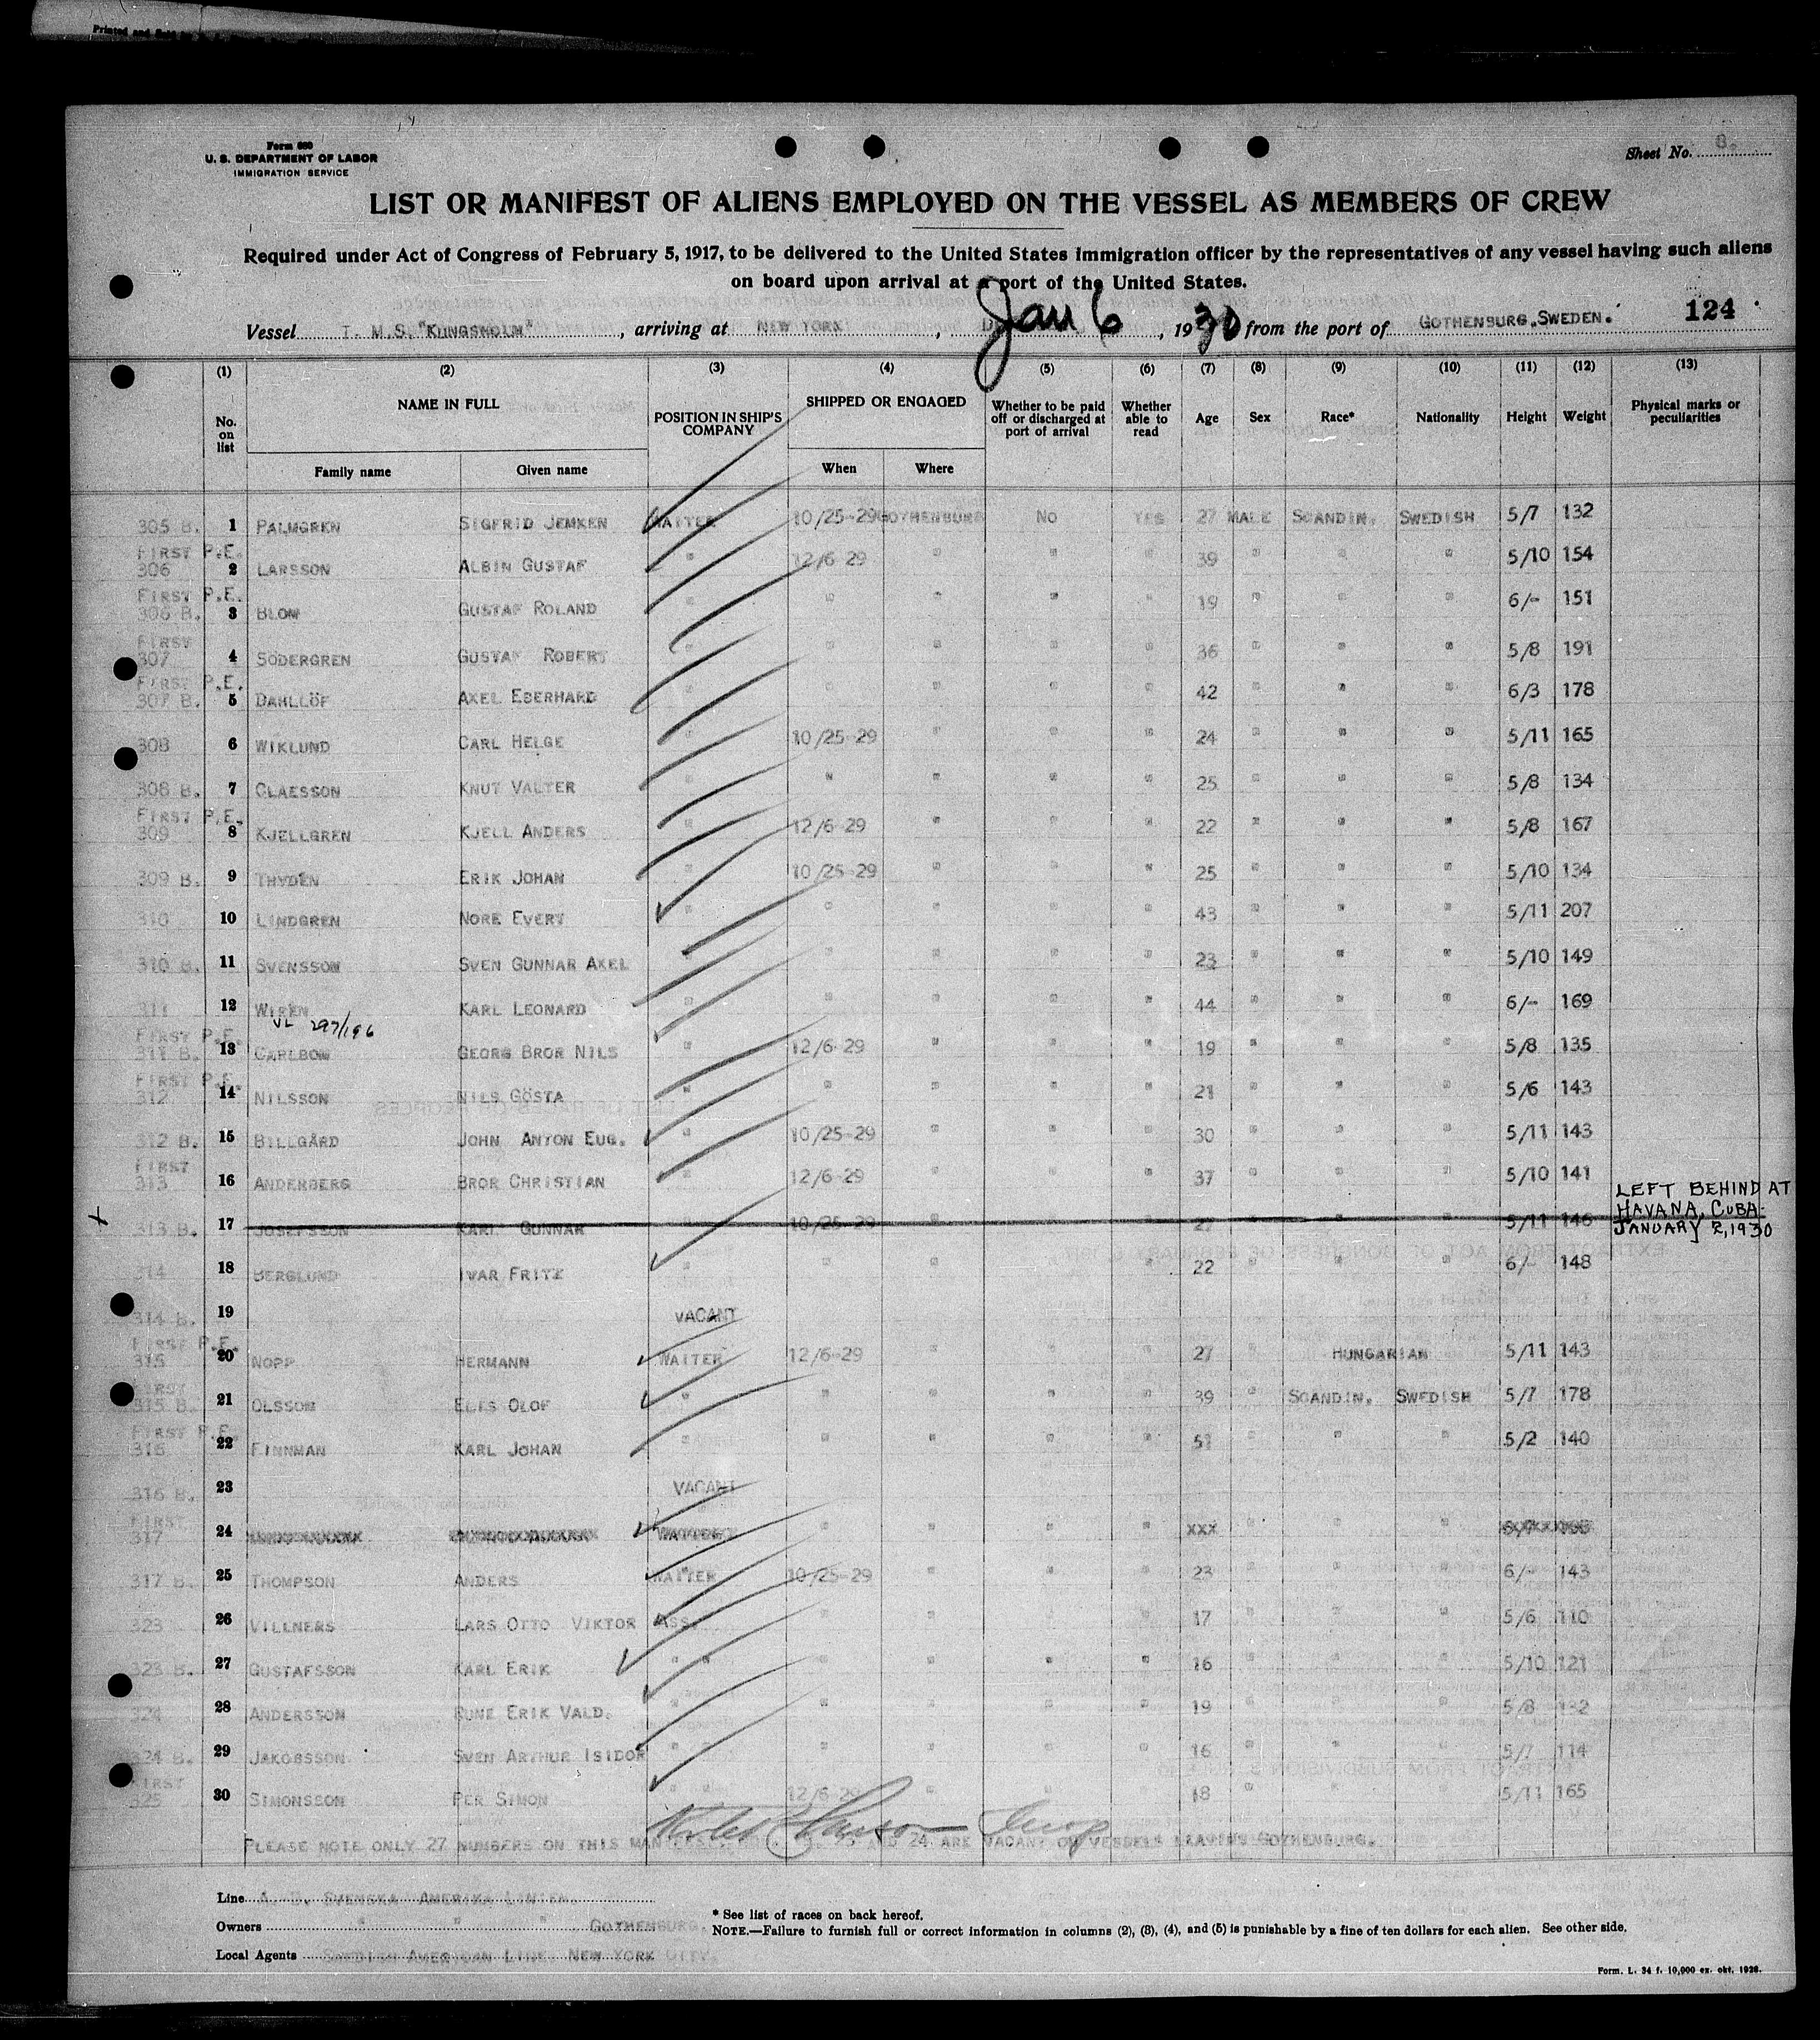 Form 680
U. S. DEPARTMENT OF LABOR
IMMIGRATION SERVICE
Sheet No. 8.
LIST OR MANIFEST OF ALIENS EMPLOYED ON THE VESSEL AS MEMBERS OF CREW
Required under Act of Congress of February 5, 1917, to be delivered to the United States immigration officer by the representatives of any vessel having such aliens
on board upon arrival at a port of the United States.
Vessel T. M.S. "KUNGSHOLM", arriving at NEW YORK, Jan 6, 1930 from the port of GOTHENBURG, SWEDEN. 124
(1) (2) (3) (4) (5) (6) (7) (8) (9) (10) (11) (12) (13)
No. on list NAME IN FULL POSITION IN SHIP'S COMPANY SHIPPED OR ENGAGED Whether to be paid off or discharged at port of arrival Whether able to read Age Sex Race* Nationality Height Weight Physical marks or peculiarities
Family name Given name When Where
305 B. 1 PALMGREN SIGFRID JEMKEN WAITER 10/25-29 GOTHENBURG NO YES 27 MALE SCANDIN. SWEDISH 5/7 132
FIRST P.E.
306 2 LARSSON ALBIN GUSTAF " 12/6-29 " " " 39 " " " 5/10 154
FIRST P.E.
306 B. 3 BLOM GUSTAF ROLAND " " " " " 19 " " " 6/- 151
FIRST
307 4 SÖDERGREN GUSTAF ROBERT " " " " " 36 " " " 5/8 191
FIRST P.E.
307 B. 5 DAHLLÖF AXEL EBERHARD " " " " " 42 " " " 6/3 178
308 6 WIKLUND CARL HELGE " 10/25-29 " " " 24 " " " 5/11 165
308 B. 7 CLAESSON KNUT VALTER " " " " " 25 " " " 5/8 134
FIRST P.E.
309 8 KJELLGREN KJELL ANDERS " 12/6-29 " " " 22 " " " 5/8 167
309 B. 9 THYDEN ERIK JOHAN " 10/25-29 " " " 25 " " " 5/10 134
310 10 LINDGREN NORE EVERT " " " " " 43 " " " 5/11 207
310 B. 11 SVENSSON SVEN GUNNAR AXEL " " " " " 23 " " " 5/10 149
311 12 WIREN KARL LEONARD " " " " " 44 " " " 6/- 169
297/196
FIRST P.E.
311 B. 13 CARLBOM GEORG BROR NILS " 12/6-29 " " " 19 " " " 5/8 135
FIRST P.E.
312 14 NILSSON NILS GÖSTA " " " " " 21 " " " 5/6 143
312 B. 15 BILLGÅRD JOHN ANTON EUG. " 10/25-29 " " " 30 " " " 5/11 143
FIRST
313 16 ANDERBERG BROR CHRISTIAN " 12/6-29 " " " 37 " " " 5/10 141
LEFT BEHIND AT
HAVANA, CUBA-
JANUARY 2, 1930
x 313 B. 17 JOSEFSSON KARL GUNNAR 10/25-29 " " " 27 " " " 5/11 146
314 18 BERGLUND IVAR FRITZ " " " " 22 " " " 6/- 148
314 B. 19 VACANT
FIRST P.E.
315 20 NOPP HERMANN WAITER 12/6-29 " " " 27 " HUNGARIAN 5/11 143
FIRST
315 B. 21 OLSSON ELIS OLOF " " " " " 39 " SCANDIN. SWEDISH 5/7 178
FIRST P.E.
316 22 FINNMAN KARL JOHAN " " " " " 51 " " " 5/2 140
316 B. 23 VACANT
FIRST
317 24 " " " " xxx " " "
317 B. 25 THOMPSON ANDERS WAITER 10/25-29 " " " 23 " " " 6/- 143
323 26 VILLNERS LARS OTTO VIKTOR ASS. " " " " 17 " " " 5/6 110
323 B. 27 GUSTAFSSON KARL ERIK " " " " " " 16 " " " 5/10 121
324 28 ANDERSSON RUNE ERIK VALD. " " " " " " 19 " " " 5/8 132
324 B. 29 JAKOBSSON SVEN ARTHUR ISIDOR " " " " " 16 " " " 5/7 114
FIRST
325 30 SIMONSSON PER SIMON " " 12/6-29 " " " 18 " " " 5/11 165
PLEASE NOTE ONLY 27 NUMBERS ON THIS AND 24 ARE VACANT ON VESSELS LEAVING GOTHENBURG.
Line A. B. SVENSKA AMERIKA LINIEN
Owners " " " GOTHENBURG.
Local Agents SWEDISH AMERICAN LINE, NEW YORK CITY.
* See list of races on back hereof.
NOTE.—Failure to furnish full or correct information in columns (2), (3), (4), and (5) is punishable by a fine of ten dollars for each alien. See other side.
Form. L. 34 f. 10,000 ex. okt. 1928.